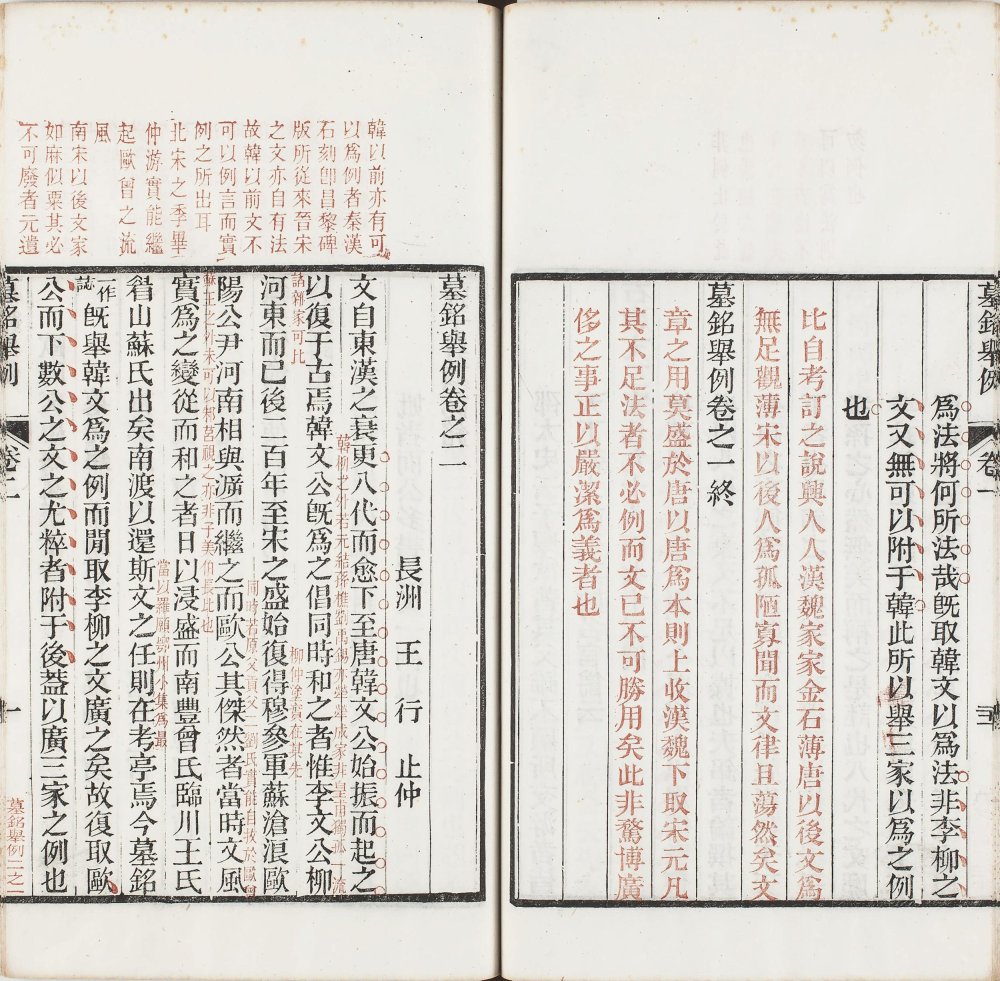 墓銘舉例
卷一
三
爲法將何所法哉旣取韓文以爲法非李柳之
文又無可以附于韓此所以舉三家以爲之例
也
比自考訂之說興人人漢魏家家金石薄唐以後文爲
無足觀薄宋以後人爲孤陋寡聞而文律且蕩然矣文
章之用莫盛於唐以唐爲本則上收漢魏下取宋元凡
其不足法者不必例而文已不可勝用矣此非驚博廣
侈之事正以嚴潔爲義者也
墓銘舉例卷之一終
韓以前亦有可
以爲例者秦漢
石刻卽昌黎碑
版所從來晉宋
之文亦自有法
故韓以前文不
可以例言而實
例之所出耳
北宋之季畢
仲游實能繼
起歐曾之流
風
南宋以後文家
如麻似粟其必
不可廢者元遺
墓銘舉例卷之二
長洲 王行 止仲
文自東漢之衰更八代而愈下至唐韓文公始振而起之
韓柳之外若元結蔣樵劉禹錫亦犖犖成家非皇甫獨孤一流
以復于古焉韓文公旣爲之倡同時和之者惟李文公柳
諸雜家可比
河東而已後二百年至宋之盛始復得穆參軍蘇滄浪歐
柳仲塗實在其先
陽公尹河南相與溯而繼之而歐公其傑然者當時文風
同時若原父貢父二劉氏實能自拔於歐曾
蘇王之外未可以邾莒視之亦非子美伯長比也
實爲之變從而和之者日以浸盛而南豐曾氏臨川王氏
眉山蘇氏出矣南渡以還斯文之任則在考亭焉今墓銘
當以羅願鄂州小集爲最
一作誌
旣舉韓文爲之例而閒取李柳之文廣之矣故復取歐
公而下數公之文之尤粹者附于後蓋以廣三家之例也
墓銘舉例
卷二
一
墓銘舉例二之一